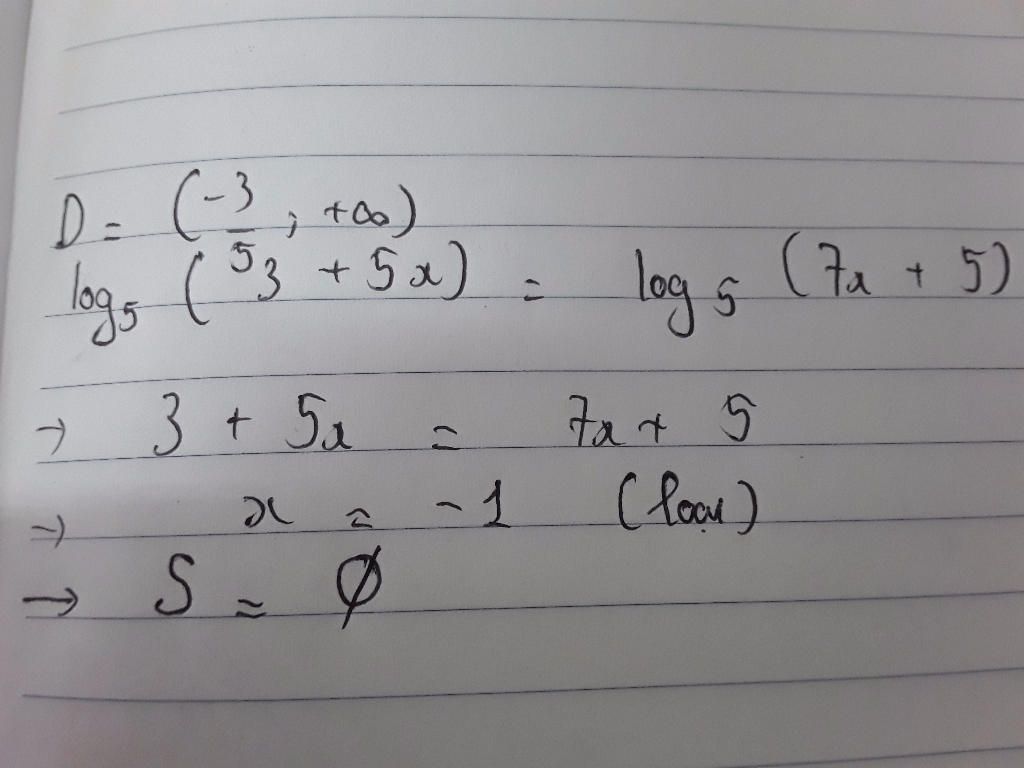 D = (-3/5 ; +∞)
log₅ (3 + 5x) = log₅ (7x + 5)
→ 3 + 5x = 7x + 5
→ x = -1 (loại)
→ S = Ø